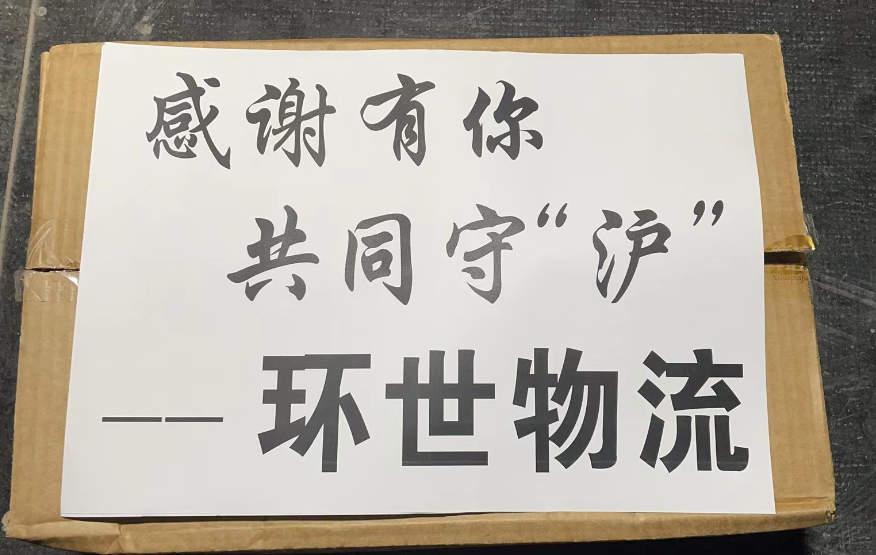 感谢有你
共同守“沪”
——环世物流